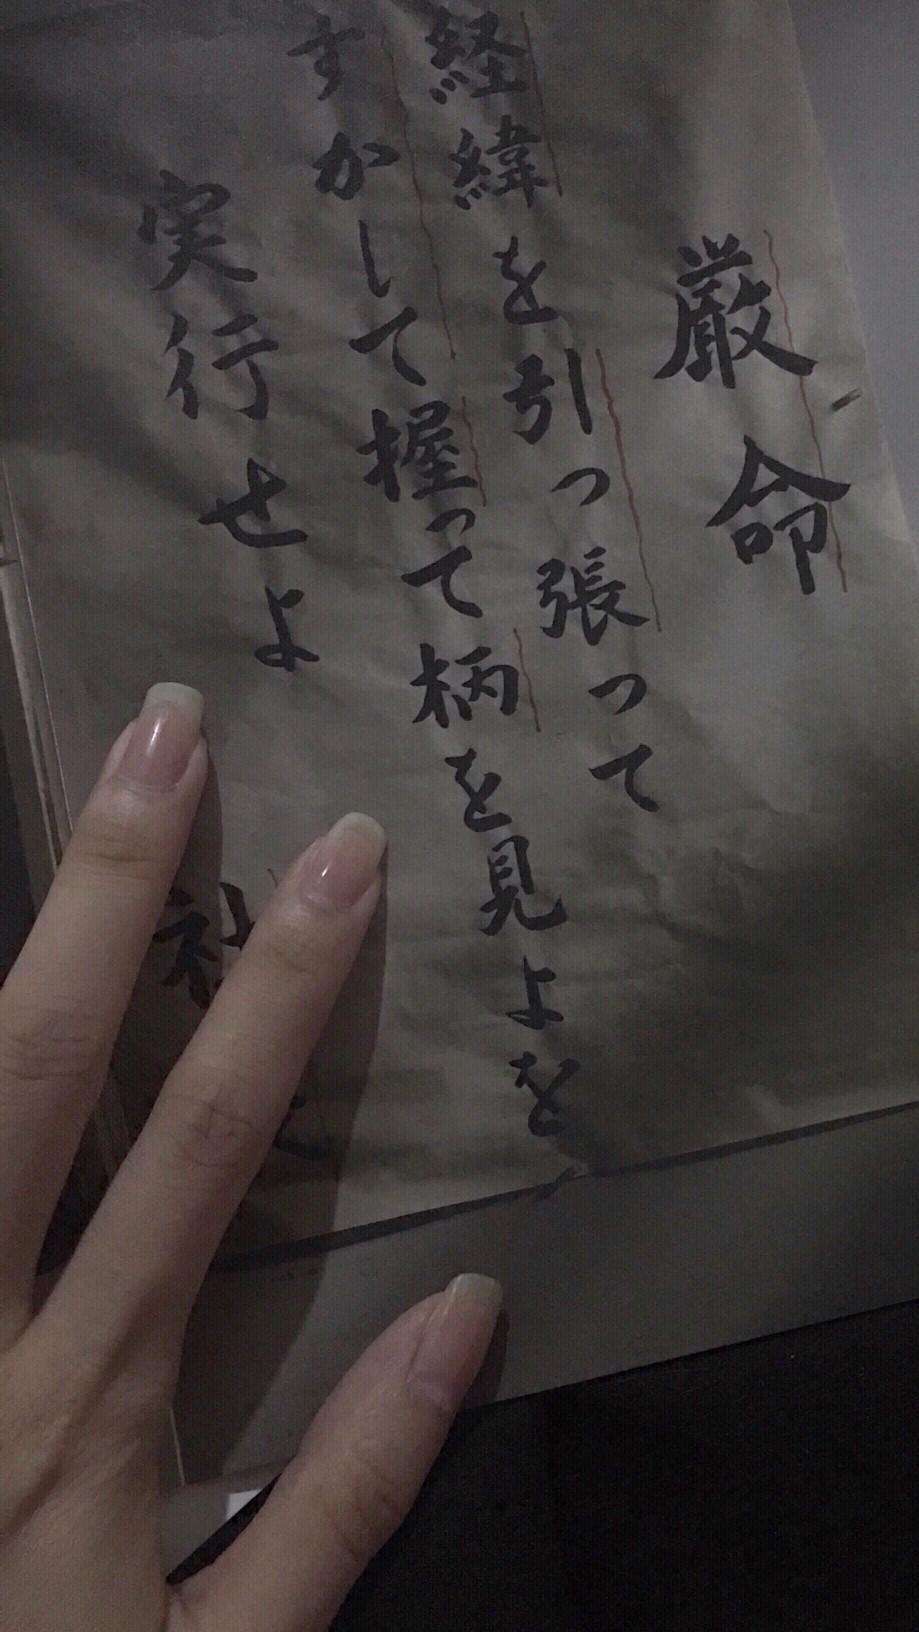 厳命
経緯を引っ張って
すかして握って柄を見よを
実行せよ
社